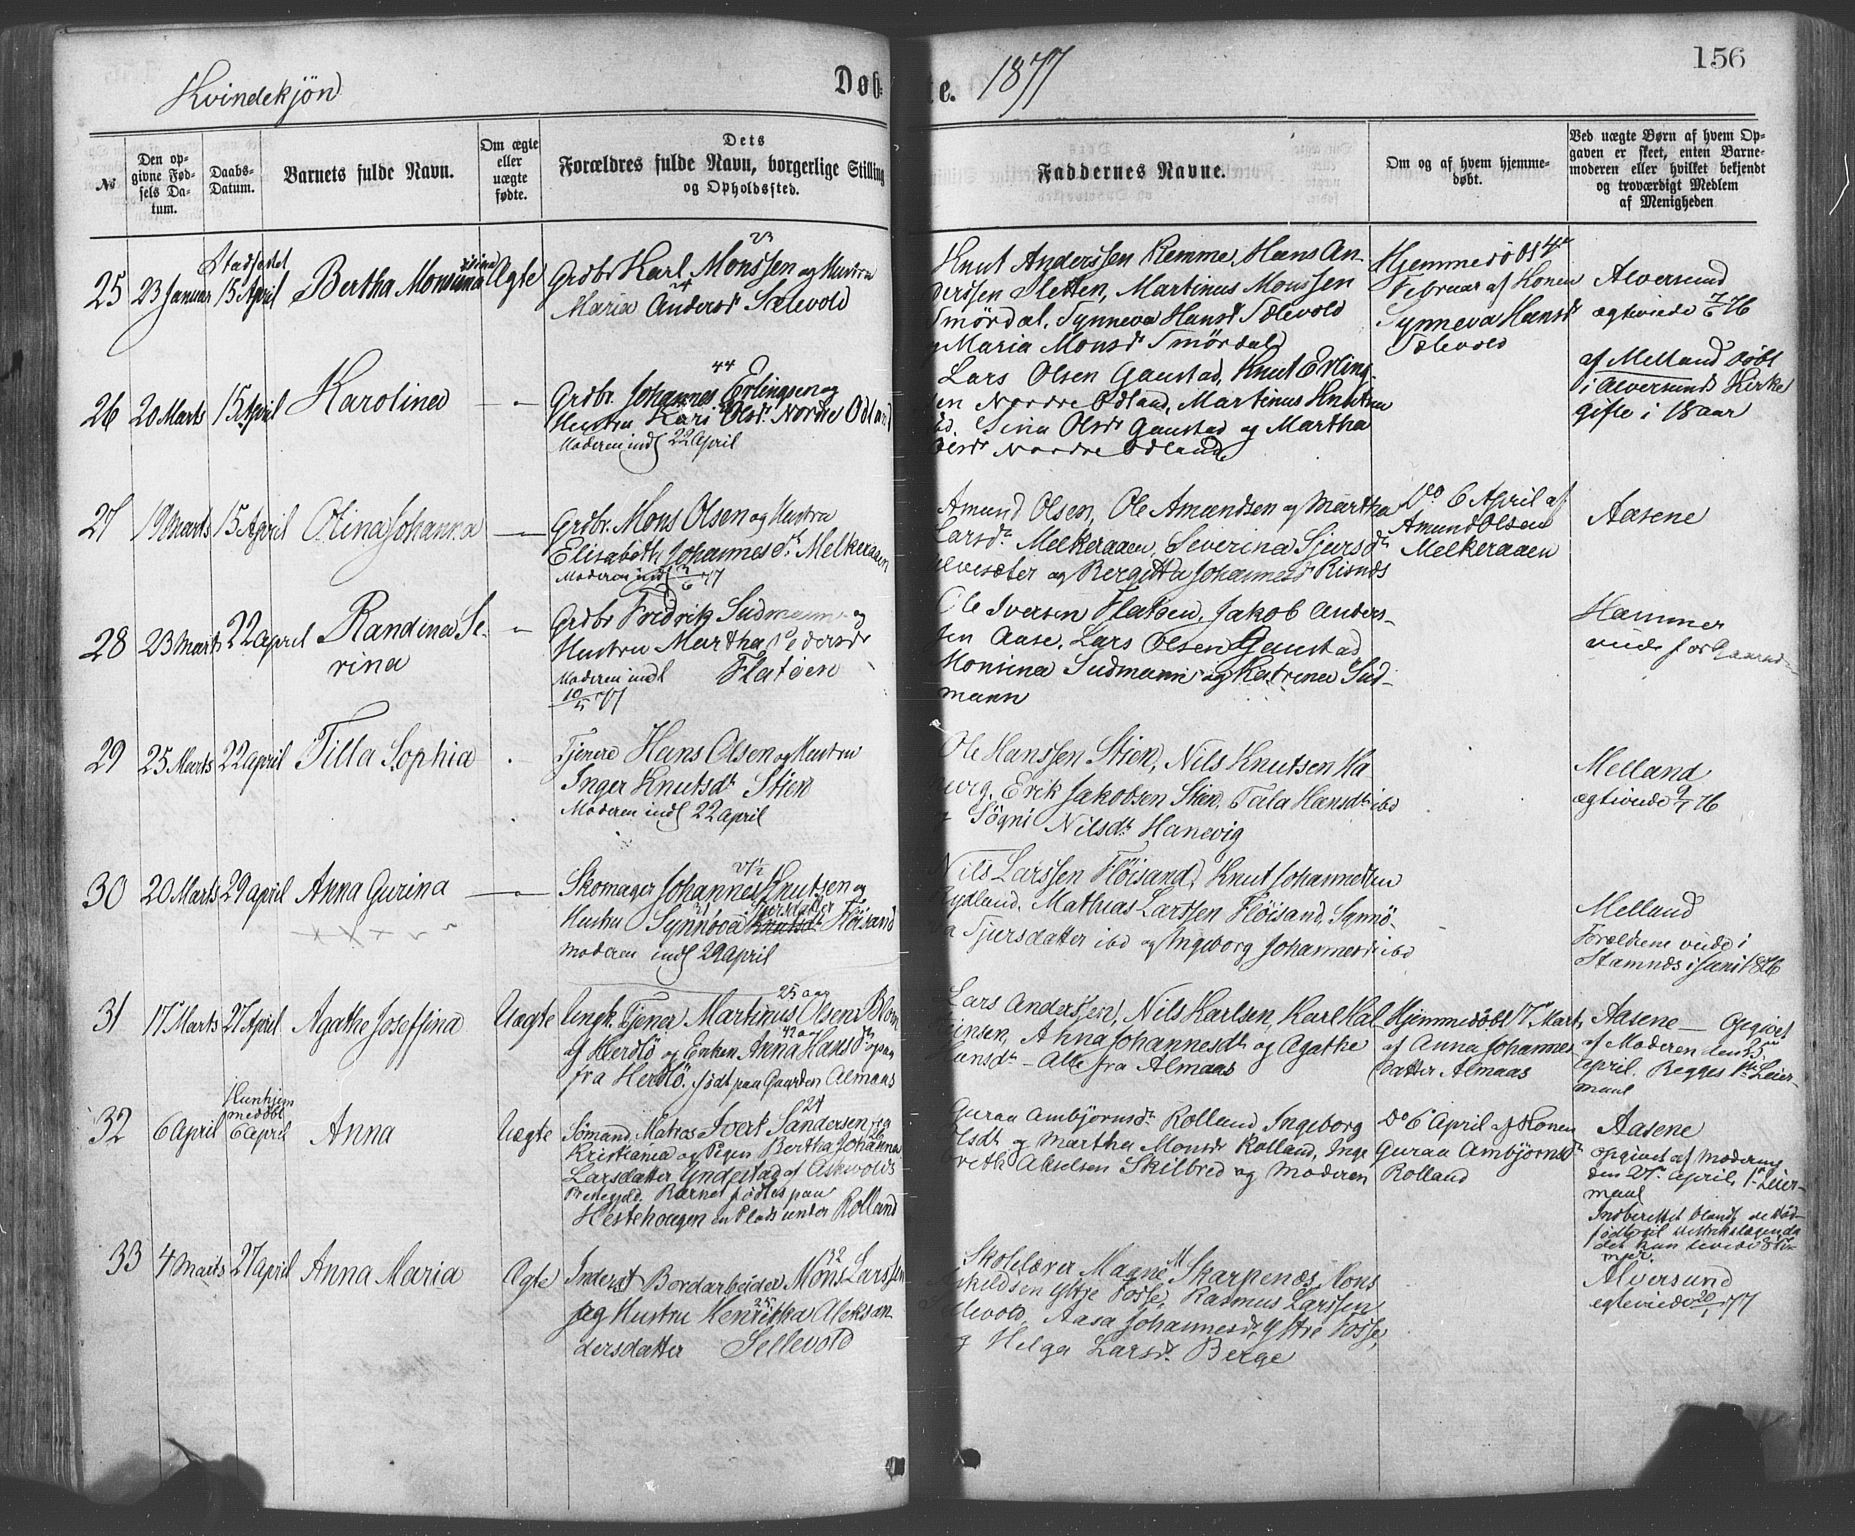 156
Kvindekjön
Døb- te. 1877
№
Den opgivne Fødsels Datum.
Daabs-Datum.
Barnets fulde Navn.
Om ægte eller uægte fødte.
Dets Forældres fulde Navn, borgerlige Stilling og Opholdssted.
Faddernes Navne.
Om og af hvem hjemmedøbt.
Ved uægte Børn af hvem Opgaven er skeet, enten Barnemoderen eller hvilket bekjendt og troværdigt Medlem af Menigheden
25 23 Januar Stadfestet 15 April Bertha Monsine Ægte
Grdbr Karl Monssen og Hustru 23
Maria Andersd Sælevold 24
Knut Anderssen Remme, Hans An-
derssen Sletten, Martinus Monssen
Smördal, Synneva Hansd Sælevold
og Maria Monsdr Smördal
Hjemmedöbt 4de
Februar af Konen
Synneva Hansdr
Sælevold
Alversund
ægteviede 76
26 20 Marts 15 April Karolina — " —
Grdbr. Johannes Erlingsen og 44
Hustru Kari Olsdr Nordre Odland
Moderen indl 22 April
Lars Olsen Gaustad, Knut Erling-
sen Nordre Odland, Martinus Knutsen
Sina Olsdr Gaustad og Martha
Olsdr Nordre Odland
af Melland döbt
i Alversunds Kirke
gifte i 18 aar
27 19 Marts 15 April Olina Johanna — " —
Grdbr. Mons Olsen og Hustru
Elisabeth Johannesdr. Melkeraaen
Moderen indl 77
Amund Olsen, Ole Amundsen og Martha
Larsdr Melkeraaen, Severina Sjursdr
og Bergitta Johannesdr Risnes
Do 6 April af
Amund Olsen
Melkeraaen
Aasene
28 23 Marts 22 April Randina Se- "
rina
Grdbr Fredrik Sudmann og
Hustru Martha Pedersdr
Moderen indl Flatöen
10/5 77
Ole Iversen Flatöen, Jakob Anders-
sen Aase, Lars Olsen Gaustad
Monsina Sudmann og Katrina Sud-
mann
Hammer
29 25 Marts 22 April Tilla Sophia
Tjener Hans Olsen og Hustru
Inger Knutsdr Stien
Moderen indl 22 April
Ole Hanssen Stien, Nils Knutsen Ha
Erik Jakobsen Stien, Tala Hansdr ibd
og Sögni Nilsdr Hanevig
Melland
ægteviede 76
30 20 Marts 29 April Anna Gurina — " —
Skomager Johannes Knutsen og
Hustru Synnöva Sjursdatter Flöisand
Moderen indl 29 April
Nils Larssen Flöisand, Knut Johannessen
Rydland, Mathias Larssen Flöisand, Synnö-
va Sjursdatter ibd og Ingeborg Johannesdr ibd
Melland
Forældrene viede i
Stamnes i Juni 1876
31 17 Marts 27 April Agathe Joseffina Uægte
25 aar
Ungk. Tjener Martinus Olsen Blom
af Herdlö og Enken Anna Hansdr 42 aar
fra Herdlö. födt paa Gaarden Almaas
Lars Anderssen, Nils Karlsen, Karl Hal-
Anna Johannesdr og Agathe
Hansdr - Alle fra Almaas
Hjemmedöbt 17 Marts
af Anna Johannes-
datter Almaas
Aasene — Opgivet
af Moderen den 25
April. Begges 1ste Leier-
maal
32 6 April Kun hjem medöbt 6 April Anna Uægte
24
Sömand, Matros Ivert Sandersen fra
Kristiania og Pigen Bertha Johanna 26
Larsdatter Yndestad af Askevolds
Præstegjeld. Barnet födtes paa
Hestehaugen en Plads under Rolland
Guraa Ambjörnsdr Rolland, Ingeborg
Olsdr og Martha Monsdr Rolland, Inge
breth Akselsen Skilbred og Moderen
Do 6 April af Konen
Guraa Ambjörnsdr
Rolland
Aasene
opgivet af Moderen
den 27 April, 1ste Leier-
maal
Indberettet blandt de död-
födte
33 4 Marts 27 April Anna Maria Ægte
Inderst Bordarbeider Mons Larssen 32
og Hustru Henrikka Aleksan- 25
dersdatter Sellevold
Skolelærer Magne M Skarpenæs, Mons
Askildsen Ytre Fosse, Rasmus Larssen
Sellevold, Aasa Johannesdr Ytre Fosse,
og Helga Larsdr. Berge
Alversund
egteviede 20/1 77